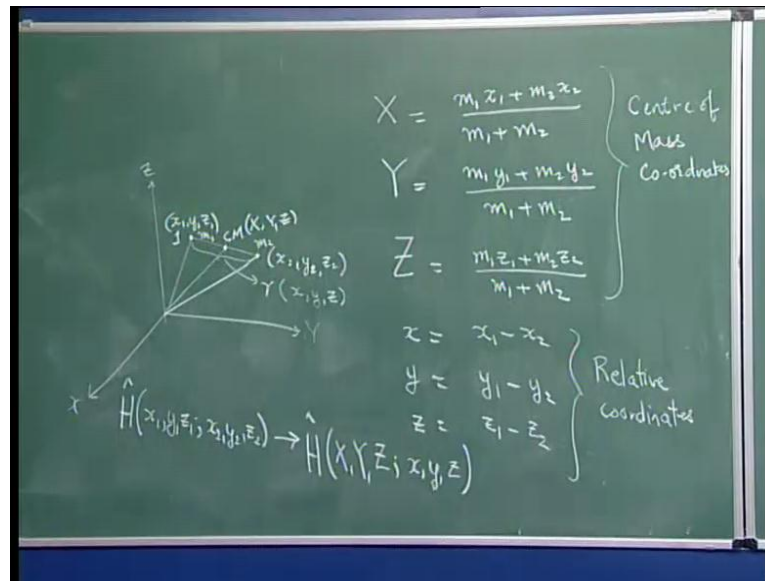 X = (m₁x₁ + m₂x₂) / (m₁ + m₂)
Y = (m₁y₁ + m₂y₂) / (m₁ + m₂)
Z = (m₁z₁ + m₂z₂) / (m₁ + m₂)
Centre of
Mass
Co-ordnates
x = x₁ - x₂
y = y₁ - y₂
z = z₁ - z₂
Relative
coordinates
Z
(x₁,y₁,z₁)
1 m₁
CM (X,Y,Z)
m₂
(x₂,y₂,z₂)
r (x,y,z)
Y
X
Ĥ(x₁,y₁,z₁; x₂,y₂,z₂) → Ĥ(X,Y,Z; x,y,z)